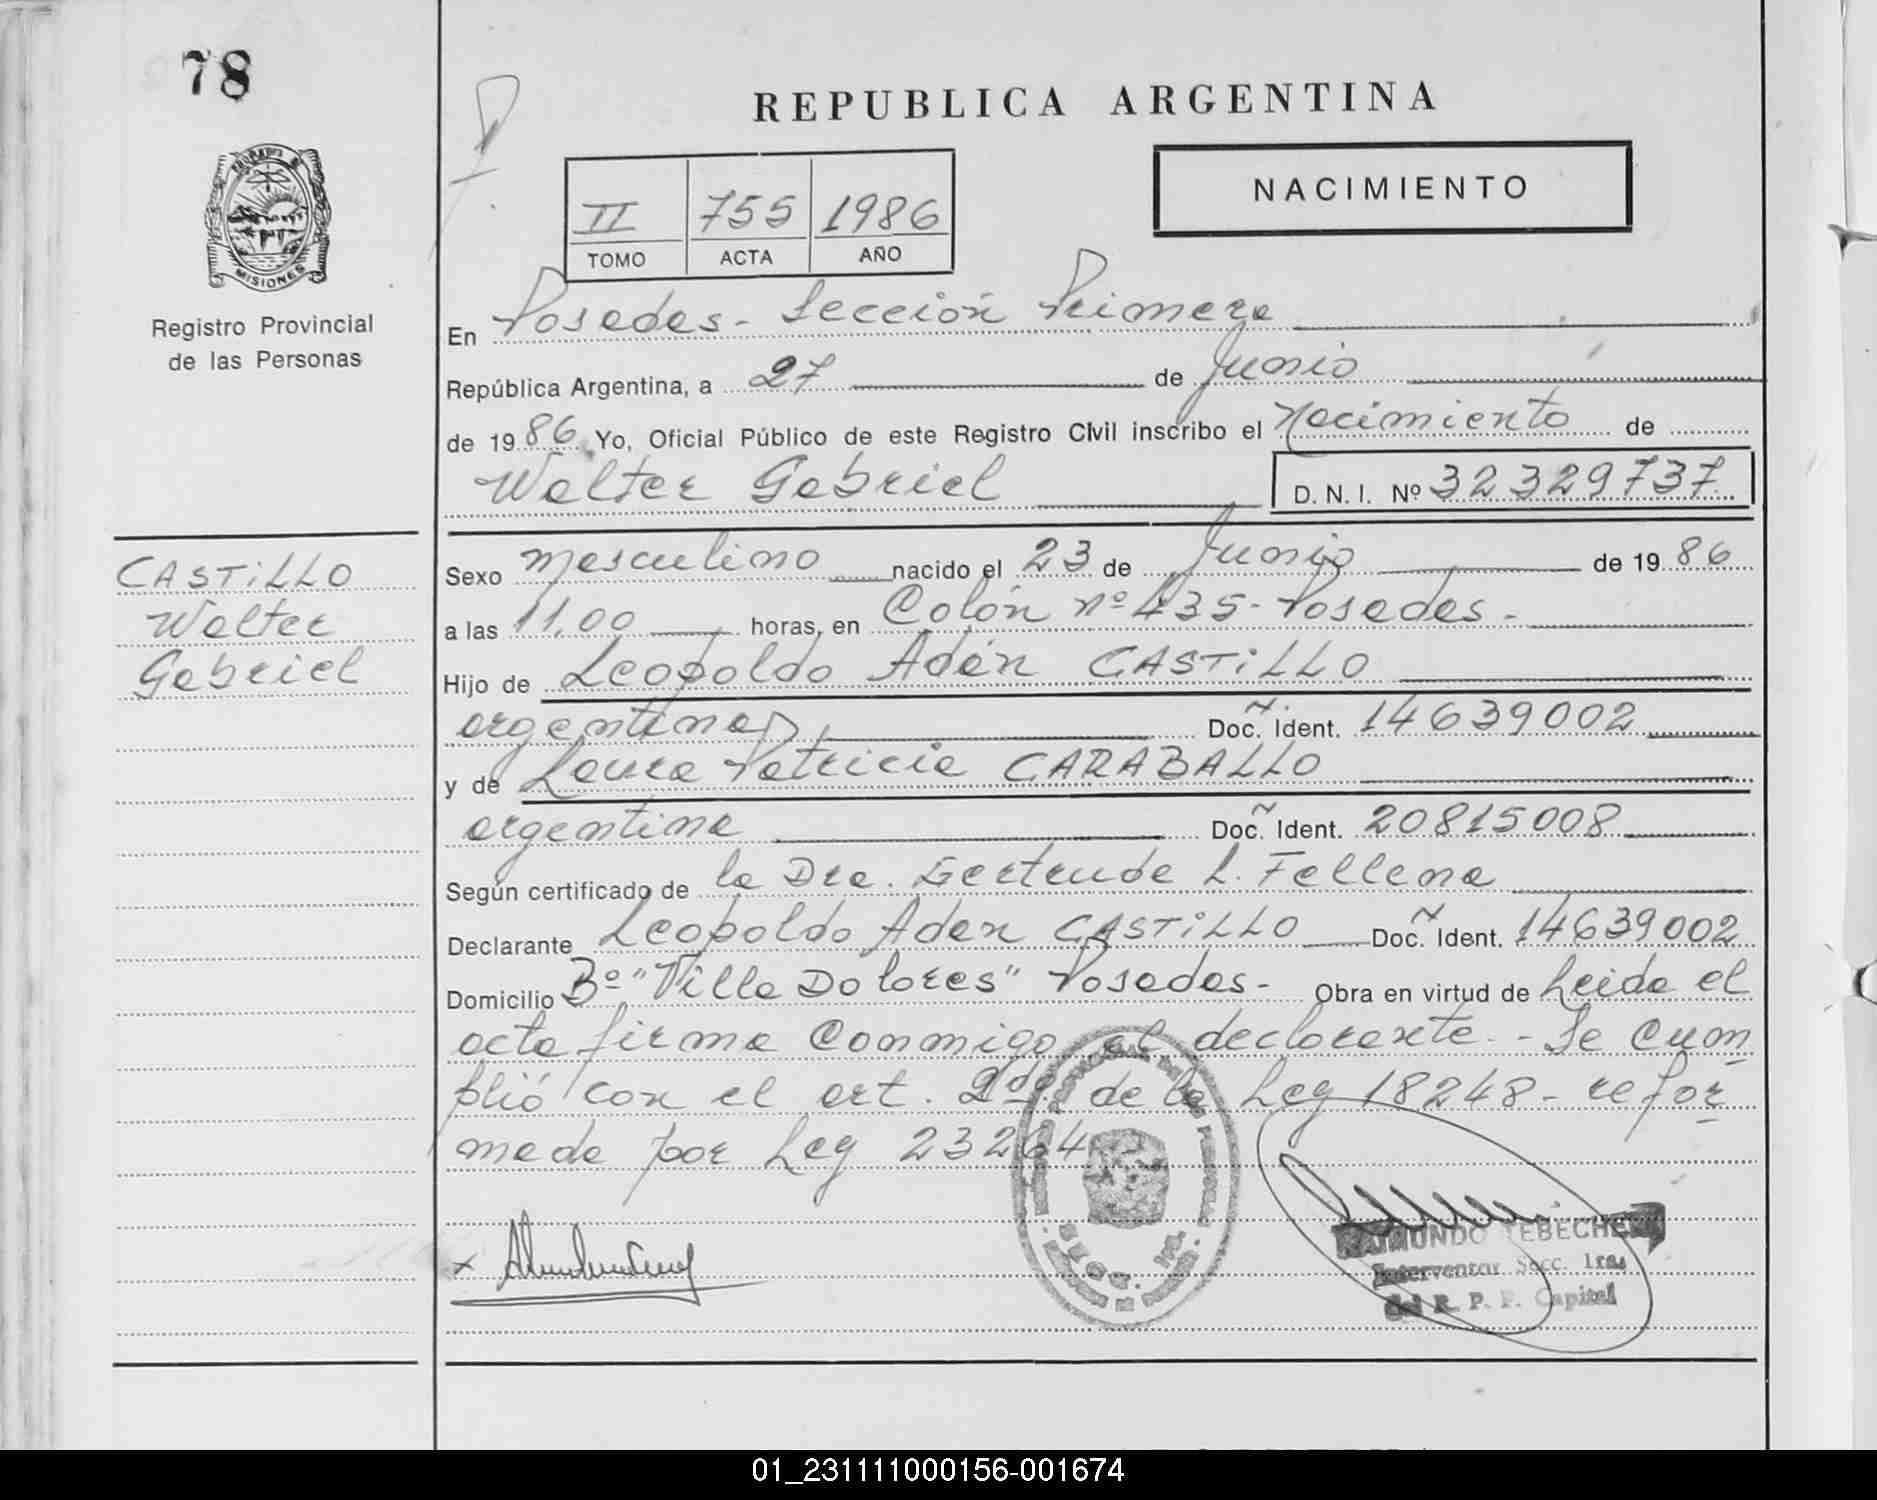 78
REPUBLICA ARGENTINA
NACIMIENTO
II 755 1986
TOMO ACTA AÑO
MISIONES
Registro Provincial
de las Personas
En Posadas - Sección Primera
República Argentina, a 27 de Junio
de 1986 Yo, Oficial Público de este Registro Civil inscribo el Nacimiento de
Walter Gabriel D.N.I. Nº 32329737
CASTILLO
Walter
Gabriel
Sexo masculino nacido el 23 de Junio de 1986
a las 11,00 horas, en Colón nº 435 - Posadas -
Hijo de Leopoldo Adán CASTILLO
argentino, Doc. Ident. 14639002
y de Laura Patricia CARABALLO
argentina Doc. Ident. 20815008
Según certificado de la Dra. Gertrude L. Fellena
Declarante Leopoldo Adan CASTILLO Doc. Ident. 14639002
Domicilio Bº "Villa Dolores" Posadas - Obra en virtud de Leida el
acta firma conmigo el declarante. - Se cum
plió con el art. 2do. de la Ley 18248 - refor
mada por Ley 23264
x
RAIMUNDO TEBECHERI
Interventor Secc. 1ra.
del R. P. P. Capital
01_231111000156-001674